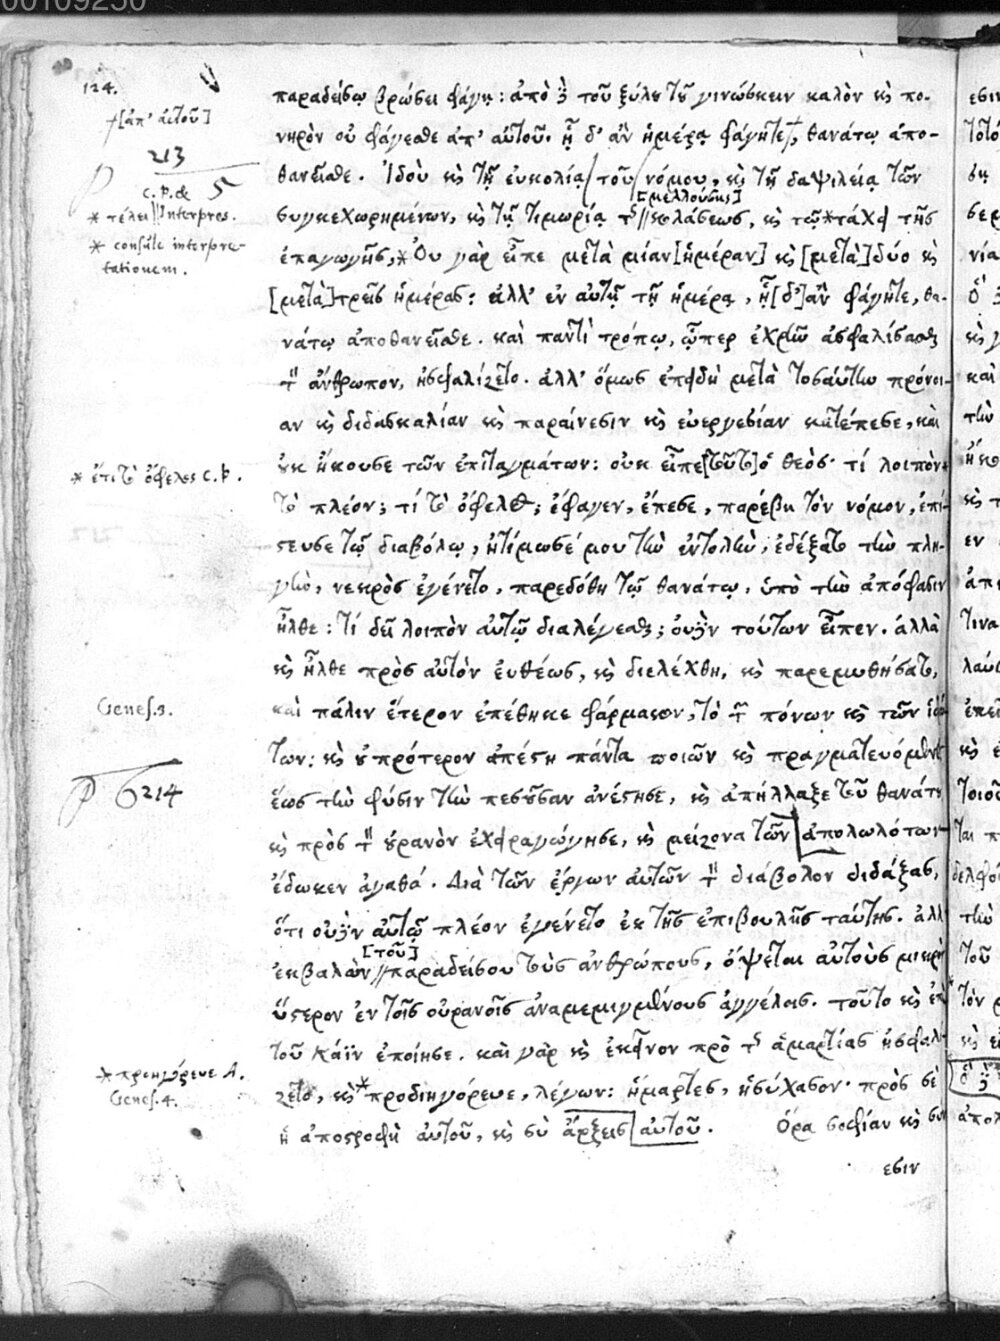 00109250
124.
†[ἀπ' αὐτοῦ]
213
5
C. P. &
* τέλει || Interpres.
* consule interpre-
tationem.
* ἔτι τὸ ὄφελος C. P.
Genes. 3.
214
* προηγόρευε A.
Genes. 4.
παραδείσῳ βρώσει φάγῃ: ἀπὸ δὲ τοῦ ξύλου τοῦ γινώσκειν καλὸν καὶ πο-
νηρὸν οὐ φάγεσθε ἀπ' αὐτοῦ. ᾗ δ' ἂν ἡμέρᾳ φάγητε†, θανάτῳ ἀπο-
θανεῖσθε. Ἰδοὺ καὶ τῇ εὐκολίᾳ τοῦ νόμου, καὶ τῇ δαψιλείᾳ τῶν
[μελλούσης]
συγκεχωρημένων, καὶ τῇ τιμωρίᾳ τῆς || κολάσεως, καὶ τῷ * τάχει τῆς
ἐπαγωγῆς, * Οὐ γὰρ εἶπε μετὰ μίαν [ἡμέραν] καὶ [μετὰ] δύο καὶ
[μετὰ] τρεῖς ἡμέρας: ἀλλ' ἐν αὐτῇ τῇ ἡμέρᾳ, ᾗ [δ'] ἂν φάγητε, θα-
νάτῳ ἀποθανεῖσθε. καὶ παντὶ τρόπῳ, ᾧπερ ἐχρῆν ἀσφαλίσασθαι
τὸν ἄνθρωπον, ἠσφαλίζετο. ἀλλ' ὅμως ἐπειδὴ μετὰ τοσαύτην πρόνοι-
αν καὶ διδασκαλίαν καὶ παραίνεσιν καὶ εὐεργεσίαν κατέπεσε, καὶ
οὐκ ἤκουσε τῶν ἐπιταγμάτων: οὐκ εἶπε [τοῦτο] ὁ θεὸς· τί λοιπὸν *
τὸ πλέον; τί τὸ ὄφελος; ἔφαγεν, ἔπεσε, παρέβη τὸν νόμον, ἐπί-
στευσε τῷ διαβόλῳ, ἠτίμωσέ μου τὴν ἐντολὴν, ἐδέξατο τὴν πλη-
γὴν, νεκρὸς ἐγένετο, παρεδόθη τῷ θανάτῳ, ὑπὸ τὴν ἀπόφασιν
ἦλθε: τί δεῖ λοιπὸν αὐτῷ διαλέγεσθαι; οὐδὲν τούτων εἶπεν. ἀλλὰ
καὶ ἦλθε πρὸς αὐτὸν εὐθέως, καὶ διελέχθη, καὶ παρεμυθήσατο,
καὶ πάλιν ἕτερον ἐπέθηκε φάρμακον, τὸ τῶν πόνων καὶ τῶν ἱδρώ
των: καὶ οὐ πρότερον ἀπέστη πάντα ποιῶν καὶ πραγματευόμενος
ἕως τὴν φύσιν τὴν πεσοῦσαν ἀνέστησε, καὶ ἀπήλλαξε τοῦ θανάτου
καὶ πρὸς τὸν οὐρανὸν ἐχειραγώγησε, καὶ μείζονα τῶν ἀπολωλότων
ἔδωκεν ἀγαθά. Διὰ τῶν ἔργων αὐτῶν τὸν διάβολον διδάξας,
ὅτι οὐδὲν αὐτῷ πλέον ἐγένετο ἐκ τῆς ἐπιβουλῆς ταύτης. ἀλλ
[τοῦ]
ἐκβαλὼν || παραδείσου τοὺς ἀνθρώπους, ὄψεται αὐτοὺς μικρὸν
ὕστερον ἐν τοῖς οὐρανοῖς ἀναμεμιγμένους ἀγγέλοις. τοῦτο καὶ ἐπὶ
τοῦ Κάϊν ἐποίησε. καὶ γὰρ καὶ ἐκεῖνον πρὸ τῆς ἁμαρτίας ἠσφαλί-
ζετο, καὶ * προδιηγόρευε, λέγων: ἥμαρτες, ἡσύχασον· πρὸς σὲ
ἡ ἀποστροφὴ αὐτοῦ, καὶ σὺ ἄρξεις αὐτοῦ. Ὅρα σοφίαν καὶ συν
εσιν